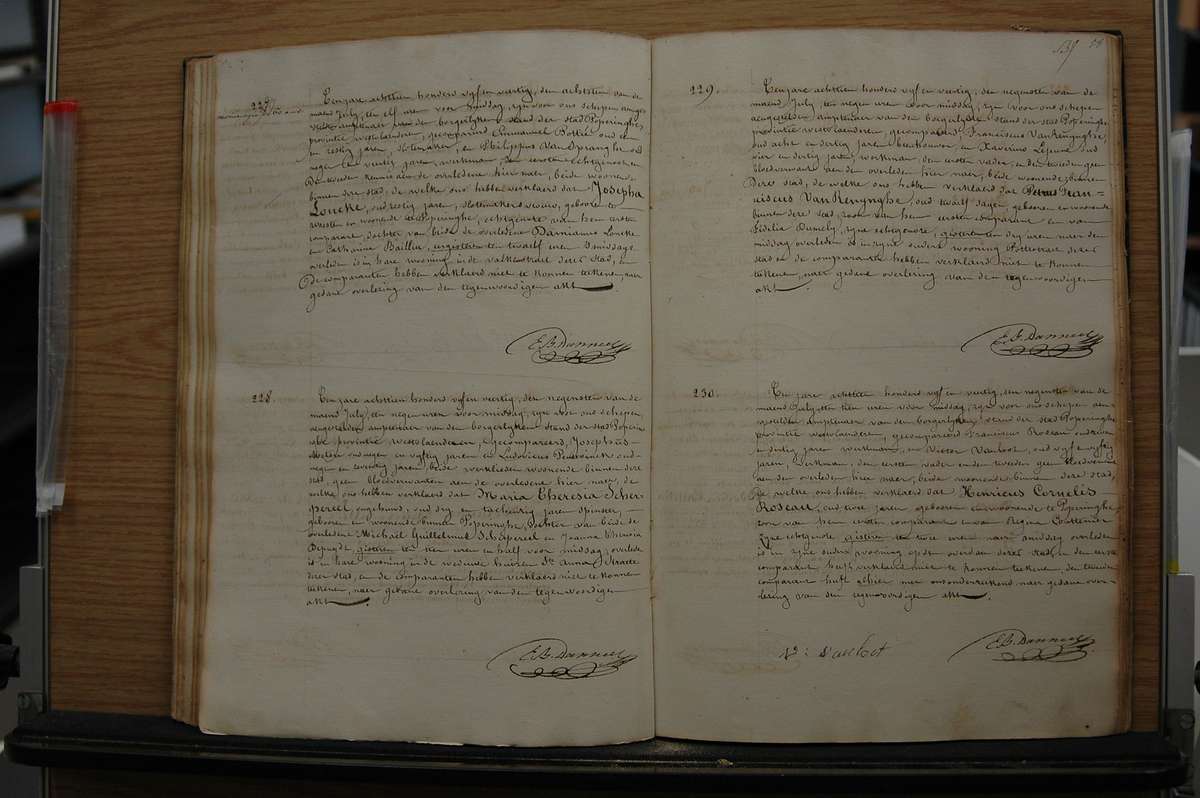 227.
Ten jare achttien honderd vyf en veertig, den achtsten van de
maend July, ten elf uren voor middag, zyn voor ons schepen aenges
telden amptenaer van den borgerlyken stand der stad Poperinghe,
provintie westvlaenderen, gecompareerd Emmanuel Bottie oud een
en zestig jaren, slotemaker, en Philippus Van Spranghe oud
negen en veertig jaren, werkman, den eersten echtgenoot en
de tweeden kennis aen de overledene hier naer, beide woonende
binnen dere stad, de welke ons hebben verklaerd dat Josepha
Loncke, oud zestig jaren, slotemakers vrouw, geboren te
en woonende te Poperinghe, echtgenote van hen eersten
comparant, dochter van beide de overledene Damianus Loncke
en Catharine Baillie, eergisteren ten twaelf uren 's middags
overleden is in hare wooning in de valkestraet dezer stad, en
de comparanten hebben verklaerd niet te konnen teekenen, naer
gedane overlezing van den tegenwoordigen akt
E. B. Danneel
228.
Ten jare achttien honderd vyf en veertig, den negensten van de
maend July, ten negen uren voor middag, zyn voor ons schepen
aengestelden amptenaer van den borgerlyken stand der stad Poperin
ghe provintie westvlaenderen, gecompareerd, Josephus
en vyftig jaren en Ludovicus oud
negen en zeventig jaren, beide werklieden woonende binnen dere
stad, geen bloedverwanten aen de overledene hier naer, de
welke ons hebben verklaerd dat Maria Theresia Scher-
pereel, ongehuwd, oud dry en tachentig jaren spinster,
geboren en woonende binnen Poperinghe, dochter van beide de
overledene Michaël Guillelmus Scherpereel en Joanna Theresia
gisteren ten tien uren en half voor middag, overleden
is in hare wooning in de weduwe huizen Ste Anna straete
dezer stad, en de comparanten hebben verklaerd niet te konnen
teekenen, naer gedane overlezing van den tegenwoordigen
akt
E. B. Danneel
229.
Ten jare achttien honderd vyf en veertig, den negensten van de
maend July, ten negen uren voor middag, zyn voor ons schepen
aengestelden amptenaer van den borgerlyken stand der stad Poperinghe
provintie westvlaenderen, gecompareerd Franciscus Van Renynghe,
oud acht en dertig jaren, en Xaverius Lejeune oud
vier en dertig jaren, werkman, den eersten vader en den tweeden geen
bloedverwant aen den overleden hier naer, beide woonende binnen
dere stad, de welke ons hebben verklaerd dat Petrus Fran-
ciscus Van Renynghe, oud twaelf dagen, geboren en woonende
binnen dere stad, zoon van hen eersten comparant en van
Fidelia Dumely, zyne echtgenote, gisteren ten dry uren naer den
middag overleden is in zyne ouders wooning Pottestraet dezer
stad en de comparanten hebben verklaerd niet te konnen
teekenen, naer gedane overlezing van den tegenwoordigen
akt
E. B. Danneel
230.
Ten jare achttien honderd vyf en veertig, den negensten van de
maend July, ten tien uren voor middag, zyn voor ons schepen aen-
gestelden amptenaer van den borgerlyken stand der stad Poperinghe
provintie westvlaenderen, gecompareerd Franciscus Roseau oud
en dertig jaren werkman, en Victor Vanloot, oud vyf en vyftig
jaren, werkman, den eersten vader en den tweeden geen bloedverwant
aen den overleden hier naer, beide woonende binnen dere stad,
de welke ons hebben verklaerd dat Henricus Cornelis
Roseau, oud twee jaren geboren en woonende te Poperinghe
zoon van hen eersten comparant en van Regina
zyne echtgenote gisteren ten twee uren naer middag overleden
is in zyne ouders wooning dezer stad en de eersten
comparant heeft verklaerd niet te konnen teekenen, den tweeden
comparant heeft alhier met ons onderteekend naer gedane over-
lezing van den tegenwoordigen akt
E. B. Danneel